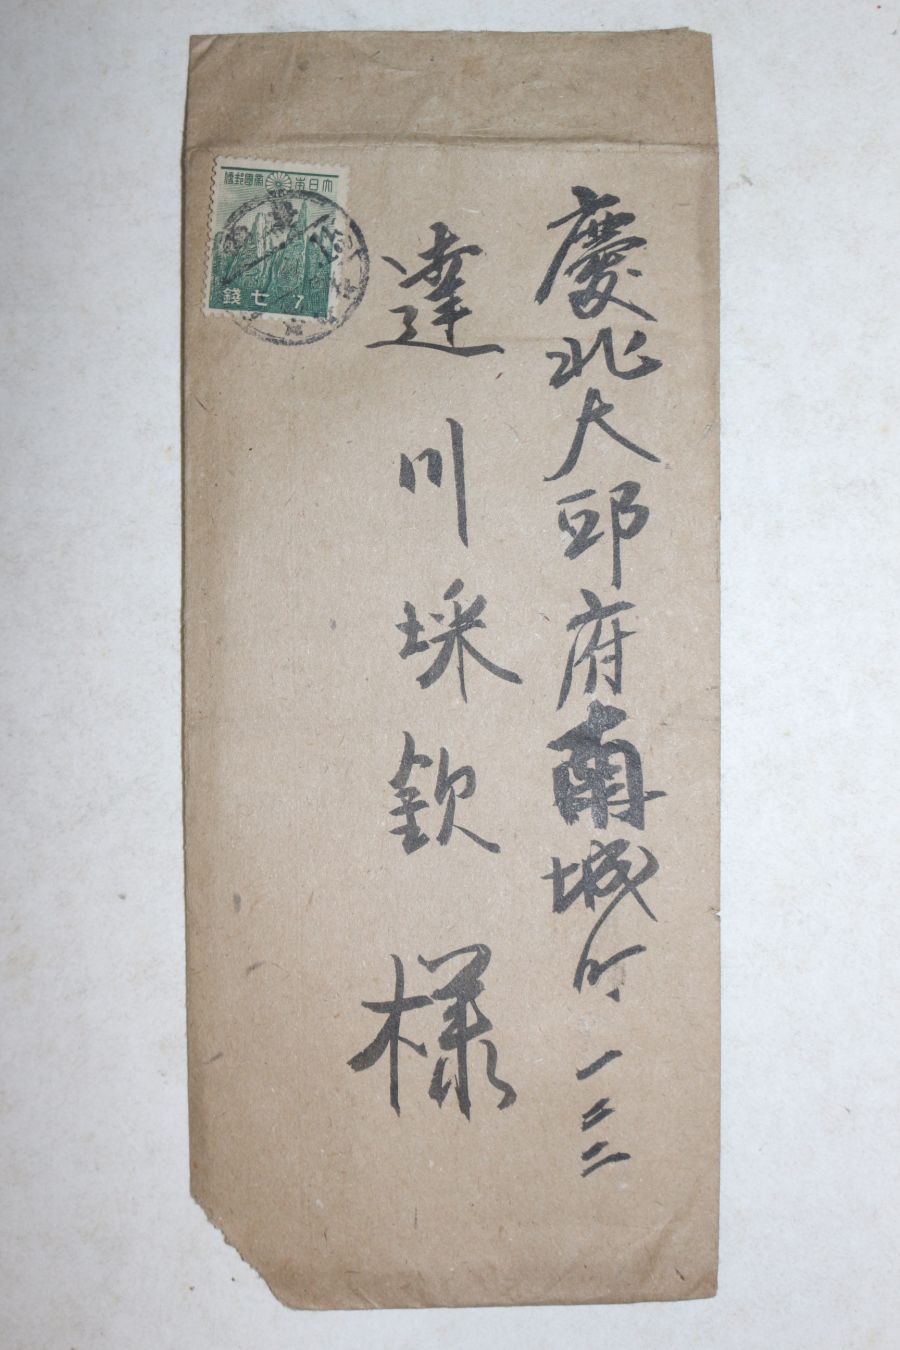 慶北大邱府南城町一二二
達川埰欽様
大日本帝國郵便
七錢
7